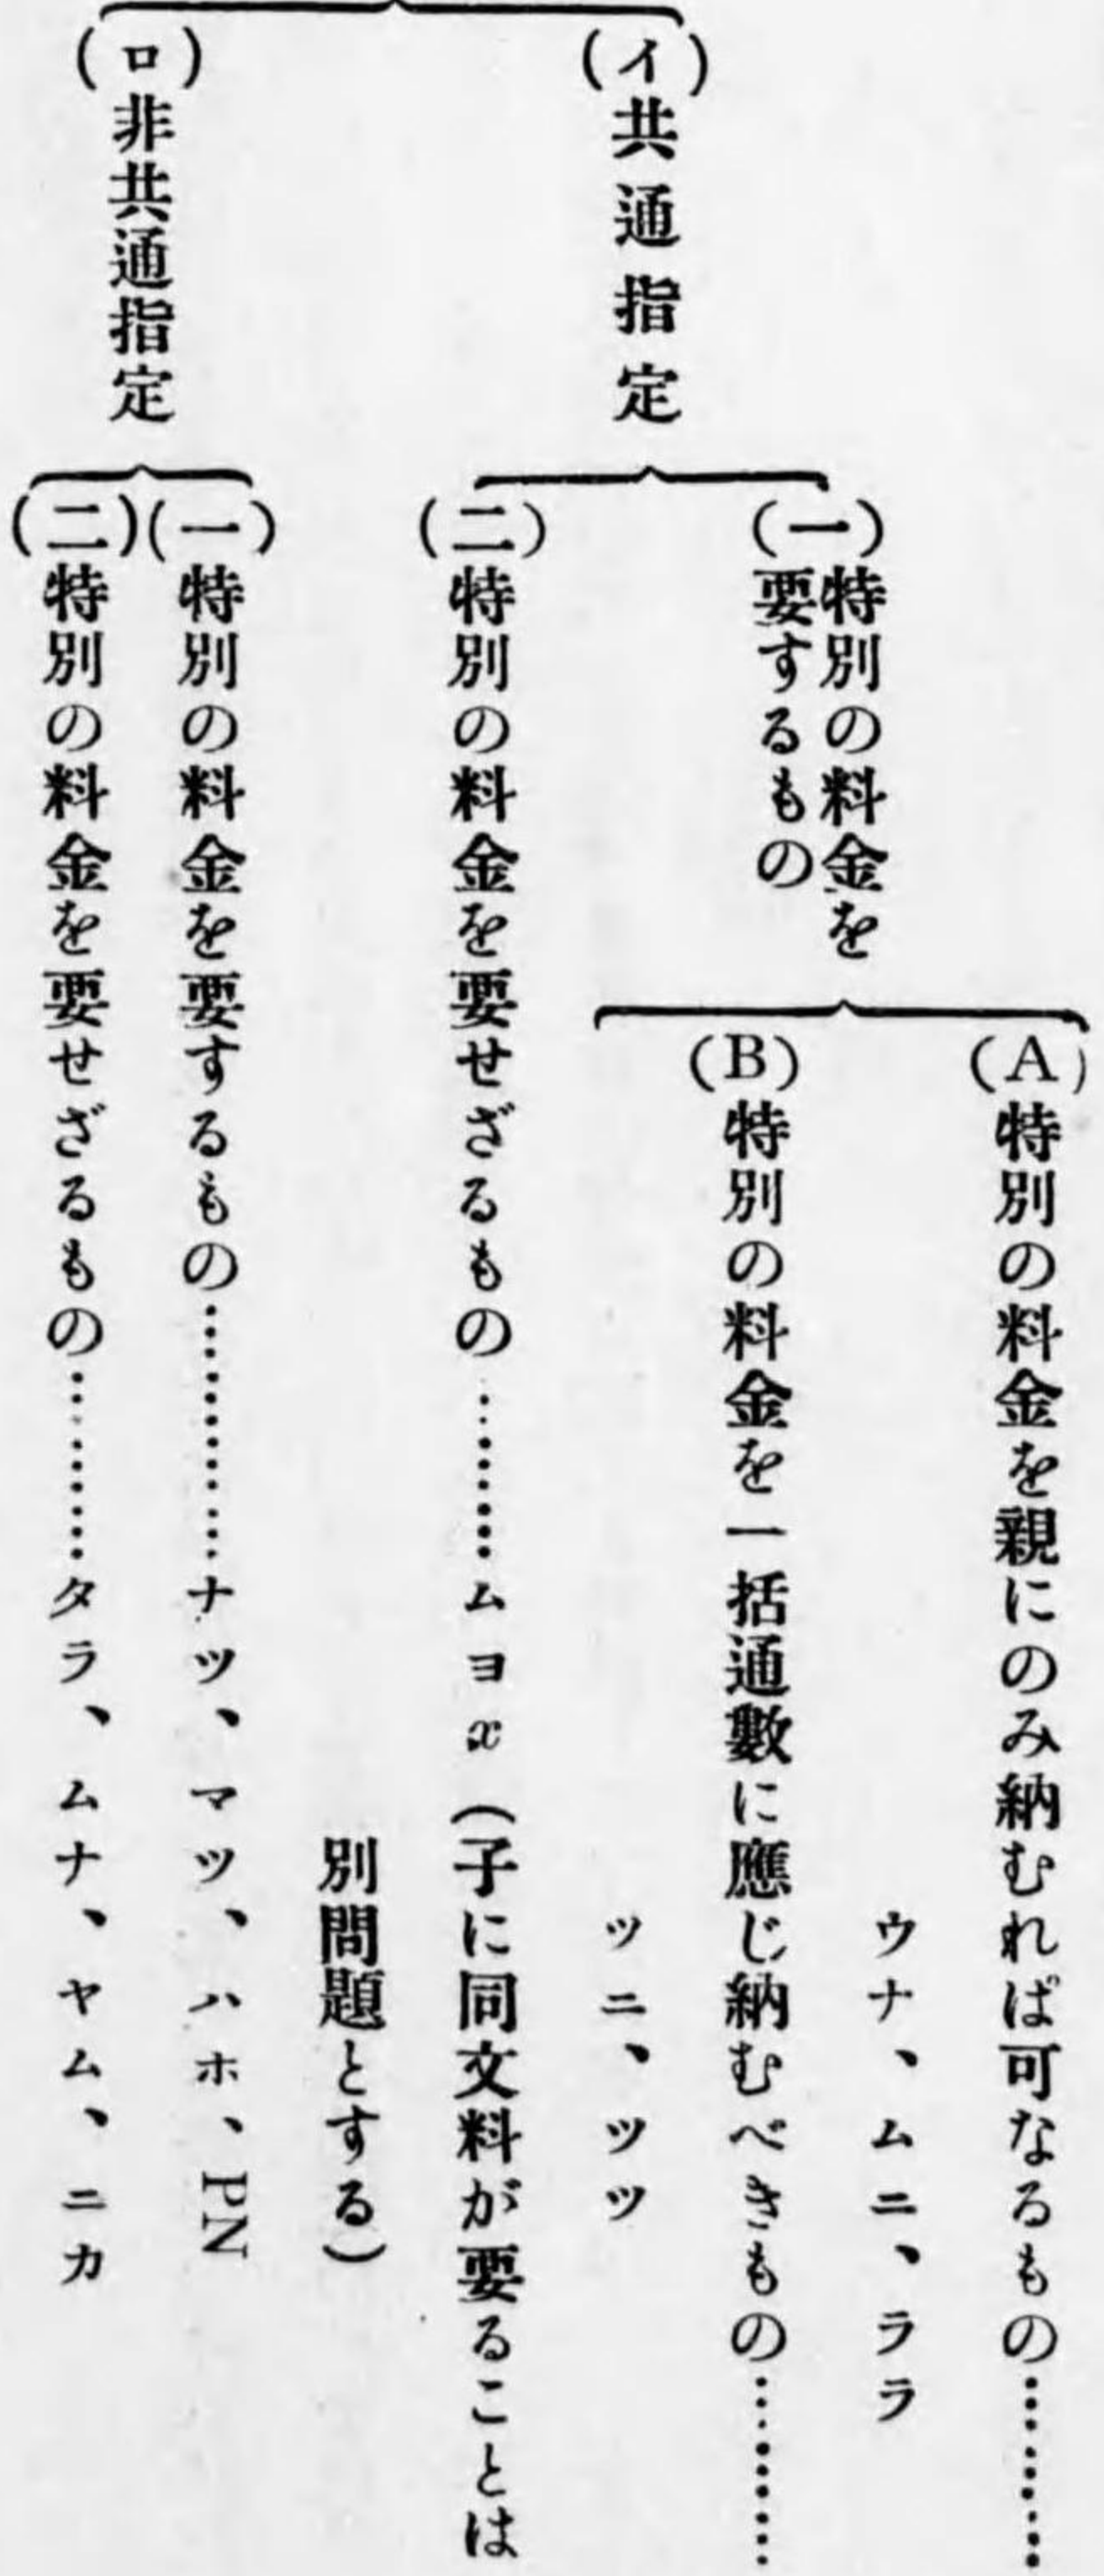 (イ)共通指定
(一)特別の料金を
要するもの
(A)特別の料金を親にのみ納むれば可なるもの…………
ウナ、ムニ、ララ
(B)特別の料金を一括通數に應じ納むべきもの…………
ツニ、ツツ
(二)特別の料金を要せざるもの…………ムヨx(子に同文料が要ることは
別問題とする)
(ロ)非共通指定
(一)特別の料金を要するもの…………ナツ、マツ、ハホ、PN
(二)特別の料金を要せざるもの…………タラ、ムナ、ヤム、ニカ